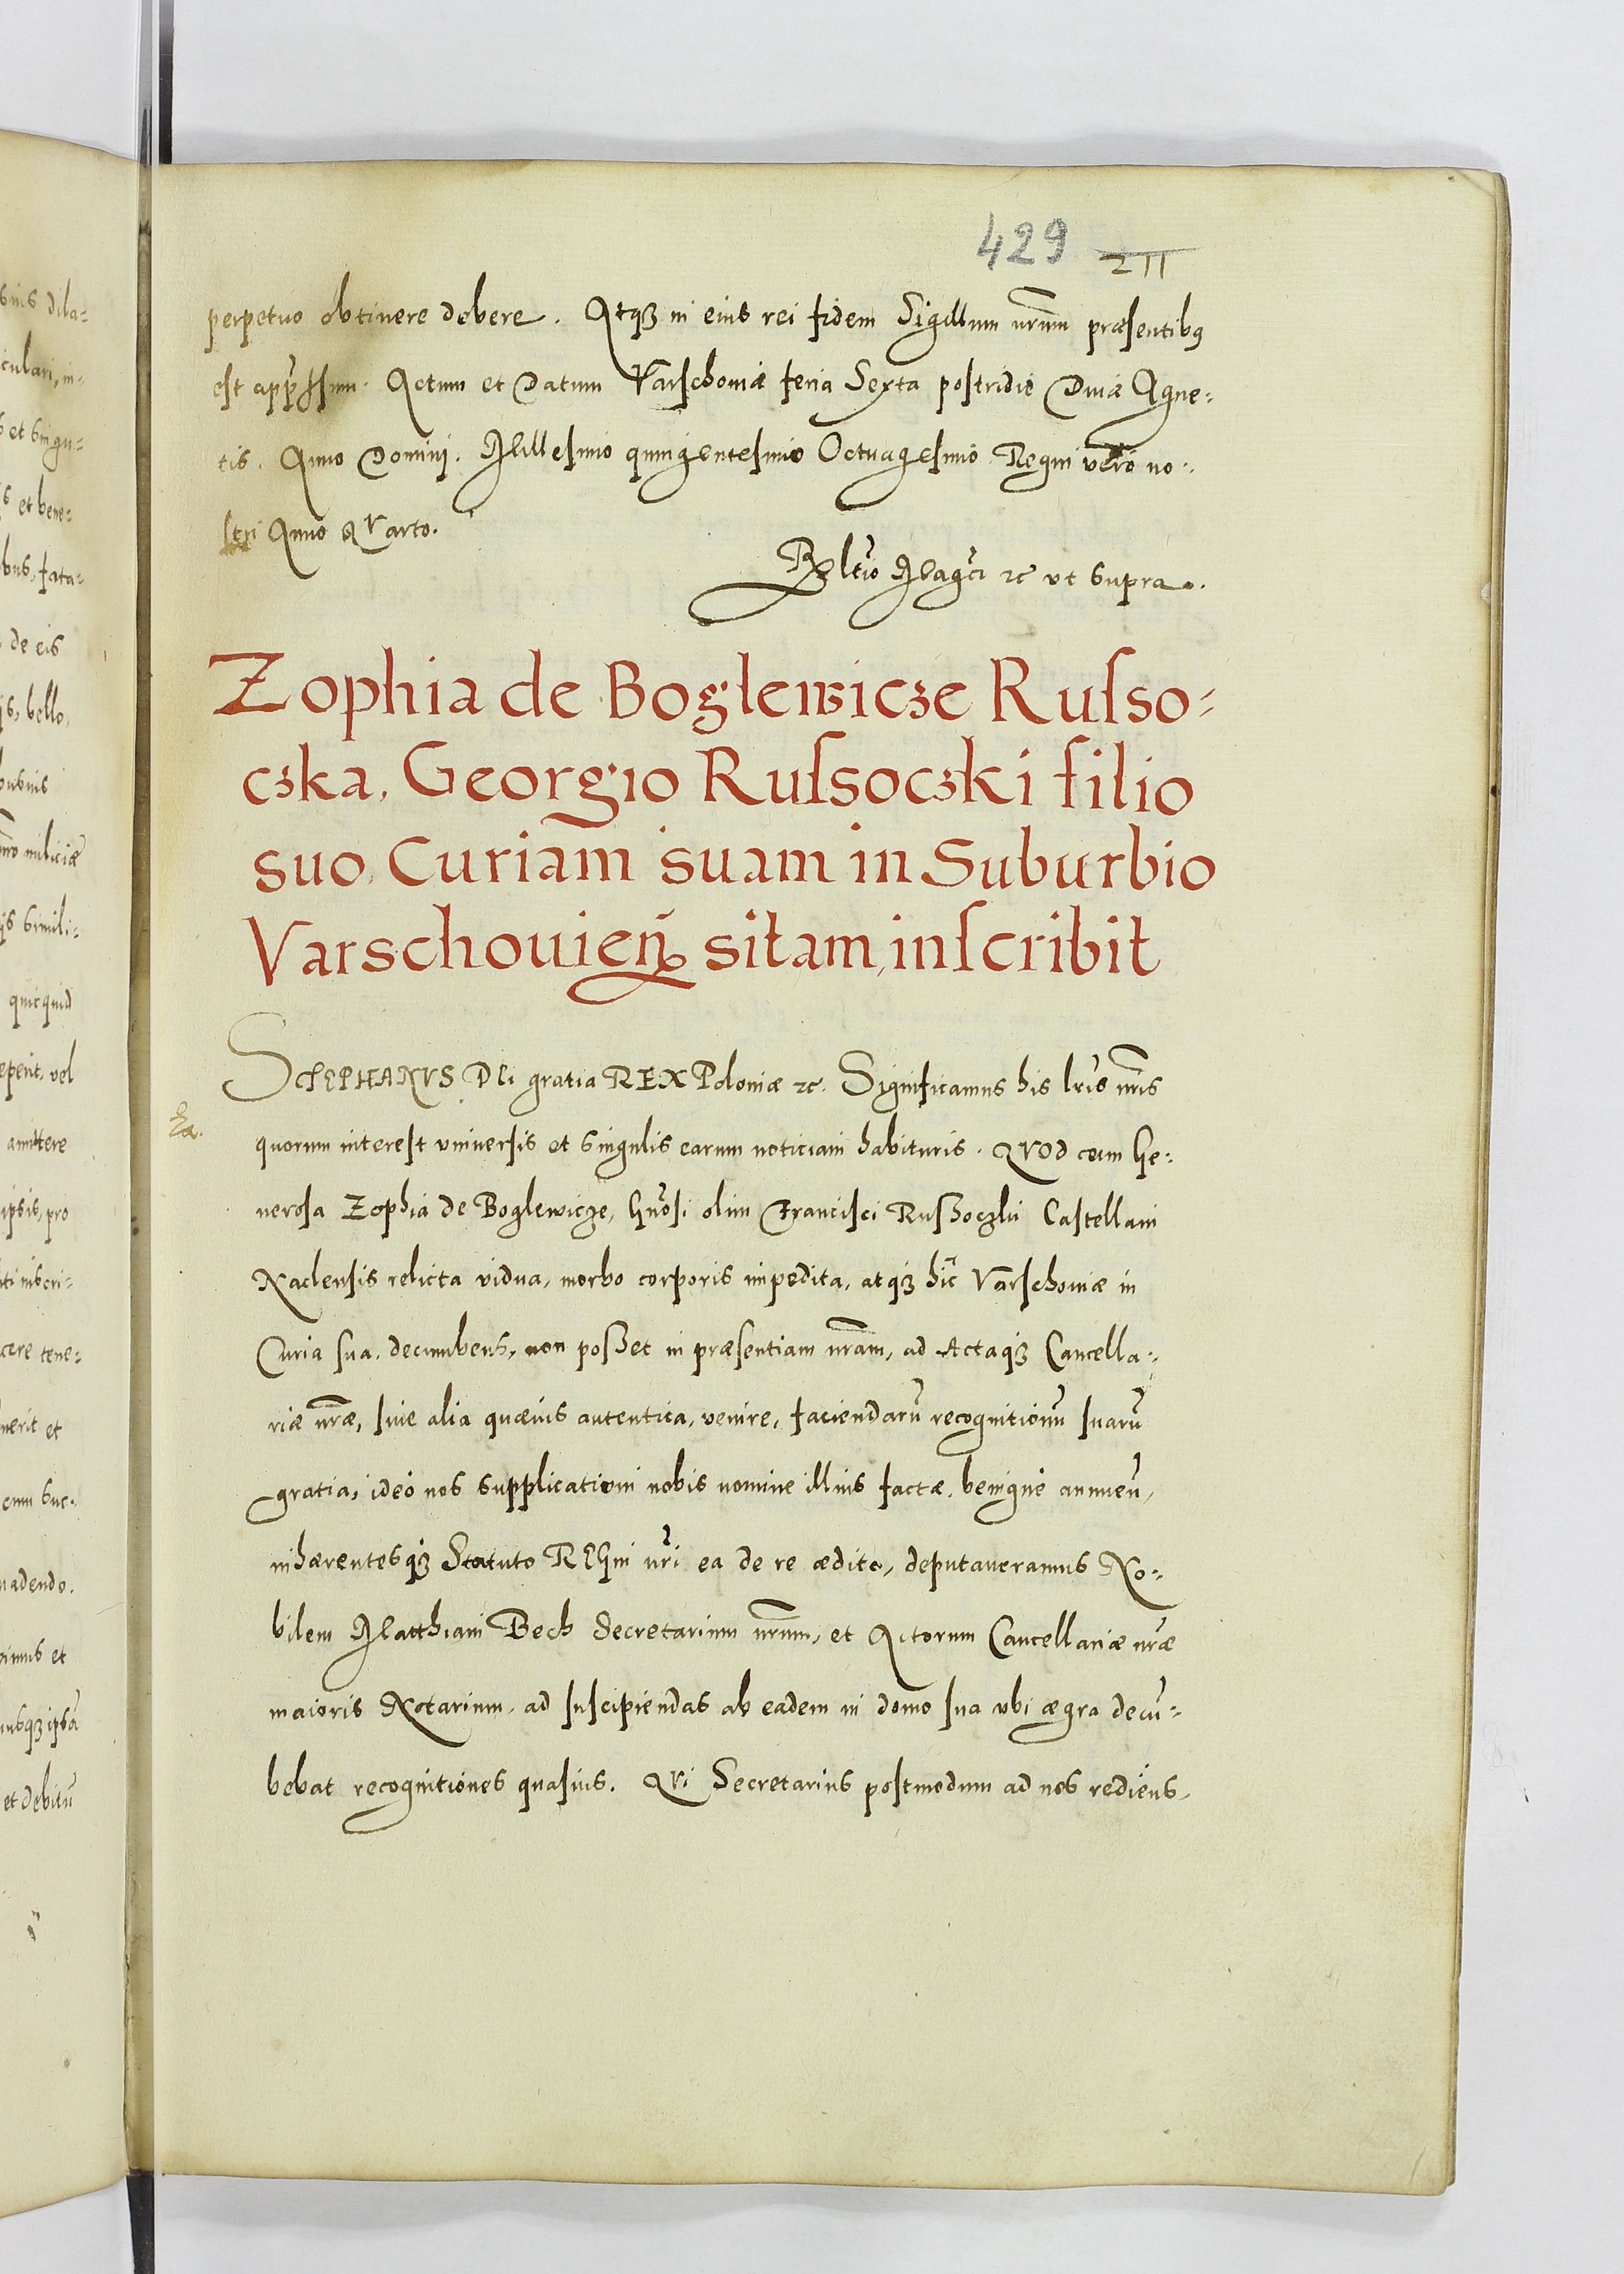 429 211
perpetuo obtinere debere. Atq3 in eius rei fidem Sigillum nr̃um præsentibꝰ
est app̃ssum. Actum et Datum Varschoviæ feria Sexta postridie Divæ Agne=
tis. Anno Dominj. Millesimo quingentesimo Octuagesimo Regni vero no=
stri Anno QVarto.
Rltio Mag̃ci ꝛc vt supra.
Zophia de Boglewicze Rusſo=
czka, Georgio Rusſoczki filio
suo, Curiam suam in Suburbio
Varschouien̄ sitam, inscribit
STEPHANVS DEi gratia REX Poloniæ ꝛc. Significamus his lr̃is nr̃is
quorum interest vniuersis et singulis earum noticiam habituris. QVOD cum Ge=
nerosa Zophia de Boglewicze, Gñosi olim Francisci Rußoczki Castellani
Naclensis relicta vidua, morbo corporis impedita, atq3 hic Varschoviæ in
Curia sua decumbens, non poßet in præsentiam nr̃am, ad Actaq3 Cancella=
riæ nr̃æ, siue alia quæuis autentica, venire, faciendarũ recognitionũ suarũ
gratia, ideo nos supplicationi nobis nomine illius factæ, benigne annuen̄,
inhærentesq3 Statuto REGni nr̃i ea de re ædito, deputaueramus No=
bilem Matthiam Bech Secretarium nr̃um, et Actorum Cancellariæ nr̃æ
maioris Notarium, ad suscipiendas ab eadem in domo sua vbi ægra decũ=
bebat recognitiones quasuis. QVi Secretarius postmodum ad nos rediens,